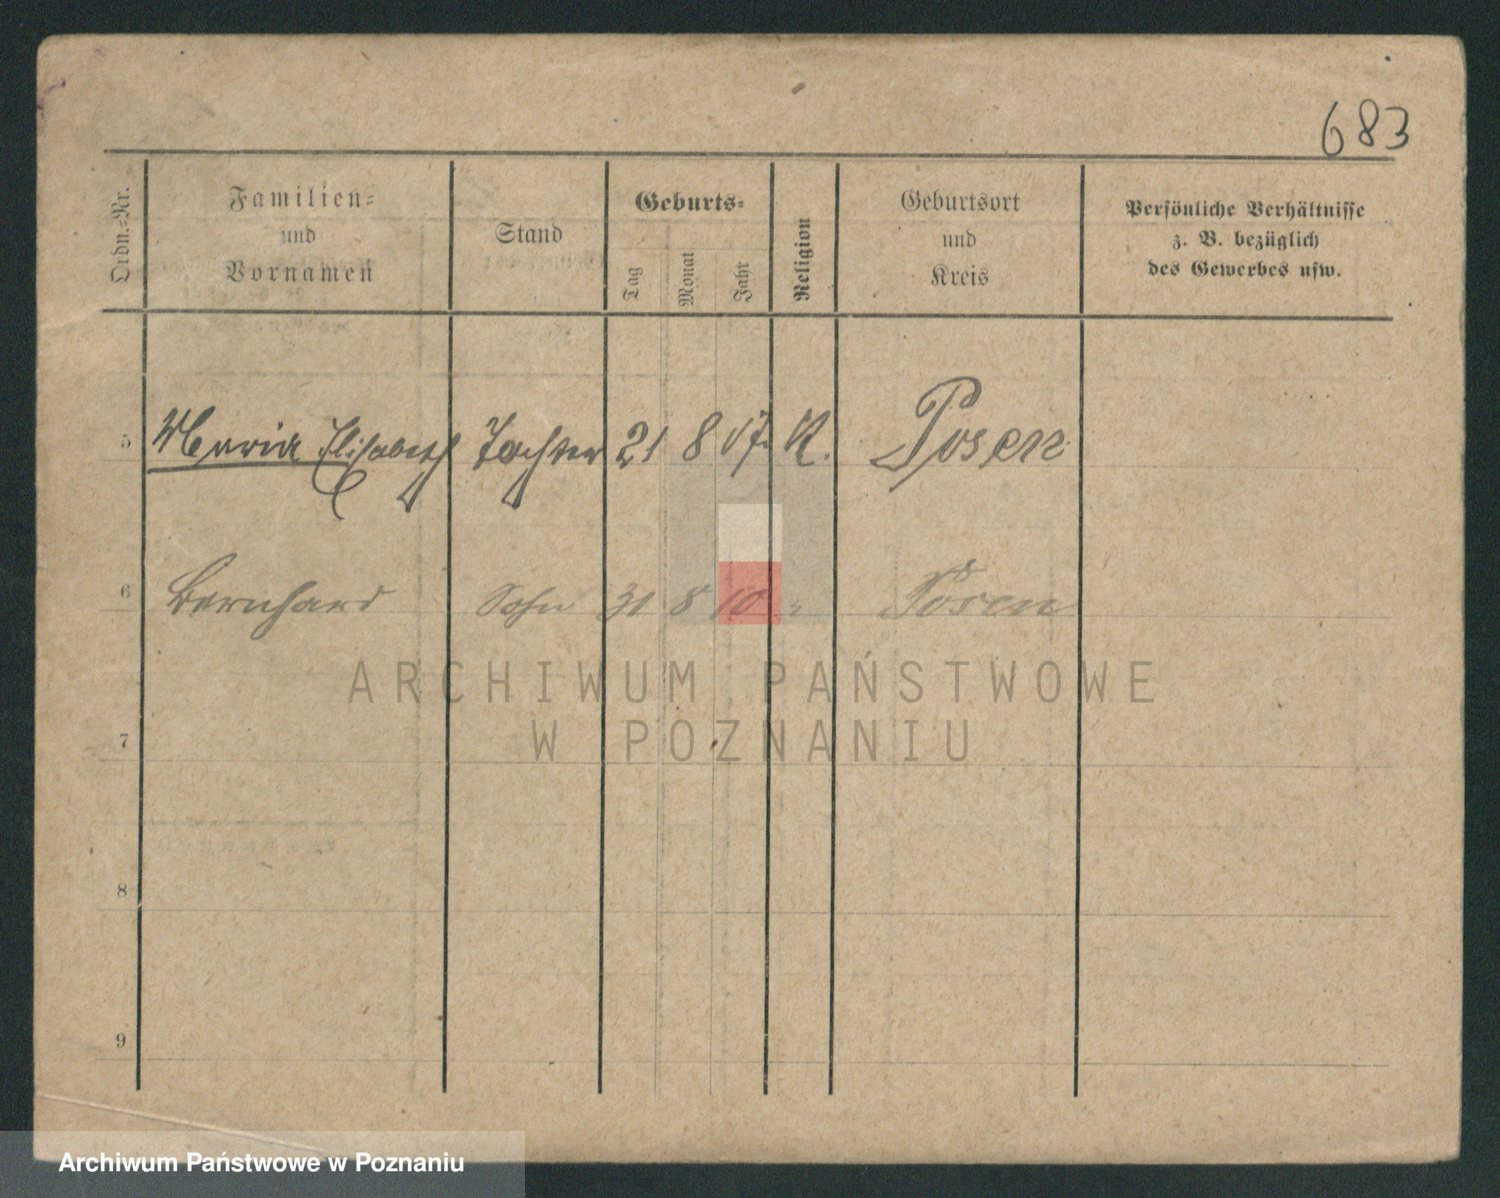 683
Ordn.-Nr.
Familien-
und
Vornamen
Stand
Geburts-
Tag
Monat
Jahr
Religion
Geburtsort
und
Kreis
Persönliche Verhältnisse
z. B. bezüglich
des Gewerbes usw.
5 Maria Elisabeth Tochter 21 8 07. K. Posen
6 Bernhard Sohn 31 8 10 " Posen
ARCHIWUM PAŃSTWOWE
W POZNANIU
7
8
9
Archiwum Państwowe w Poznaniu